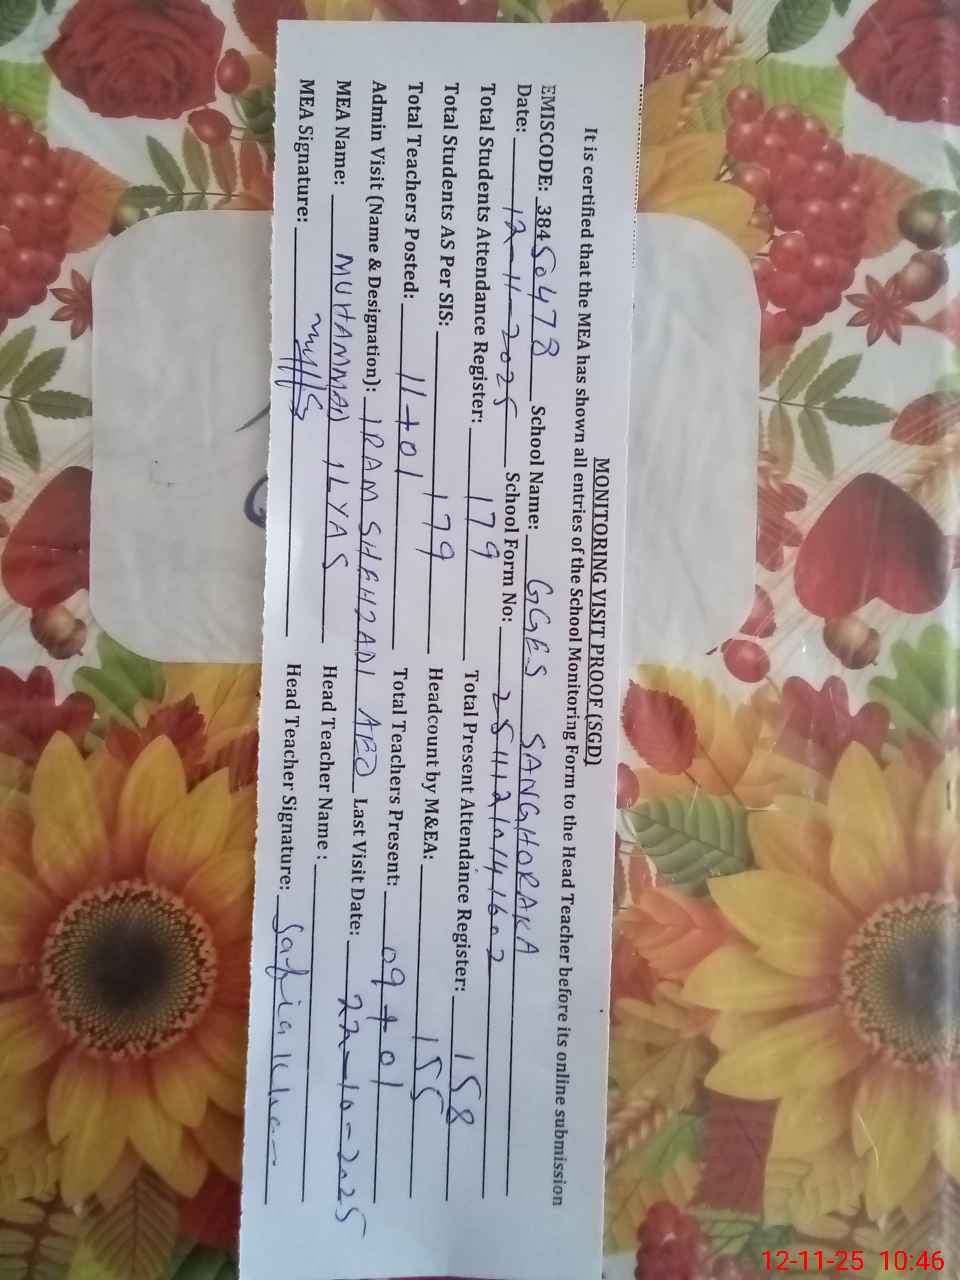 MONITORING VISIT PROOF (SGD)
It is certified that the MEA has shown all entries of the School Monitoring Form to the Head Teacher before its online submission
EMISCODE: 38450478 School Name: GGES SANGHORAKA
Date: 12-11-2025 School Form No:
Total Students Attendance Register: 179 Total Present Attendance Register: 158
Total Students AS Per SIS: 179 Headcount by M&EA: 155
Total Teachers Posted: 11+01 Total Teachers Present: 09+01
Admin Visit (Name & Designation): IRAM SHEHZADI AEO Last Visit Date: 22-10-2025
MEA Name: MUHAMMAD ILYAS Head Teacher Name :
MEA Signature: Head Teacher Signature: Safia
12-11-25 10:46